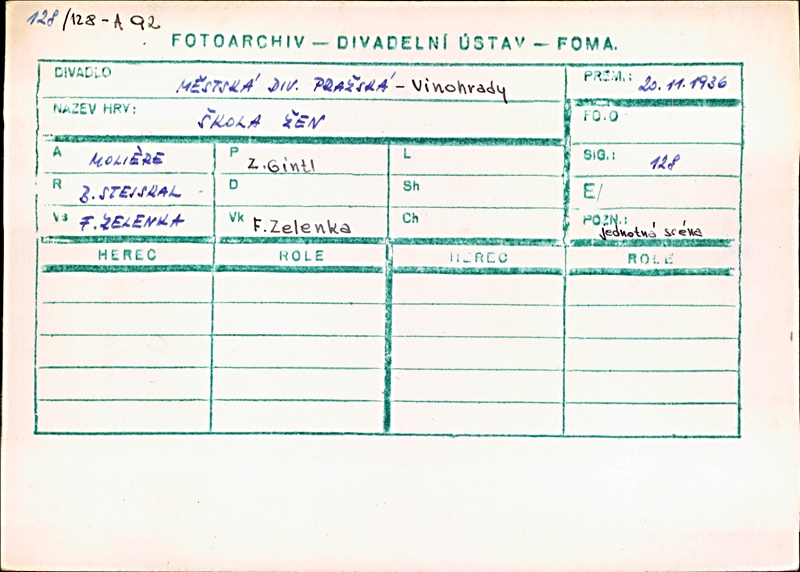 128/128-A 92
FOTOARCHIV — DIVADELNÍ ÚSTAV — FOMA.
DIVADLO MĚSTSKÁ DIV. PRAŽSKÁ - Vinohrady PREM.: 20.11.1936
NÁZEV HRY: ŠKOLA ŽEN FO.O
A MOLIÈRE P Z.Gintl L SIG.: 128
R B.STEJSKAL D Sh E/
Vs F.ZELENKA Vk F.Zelenka Ch POZN.: jednotná scéna
HEREC ROLE HEREC ROLE